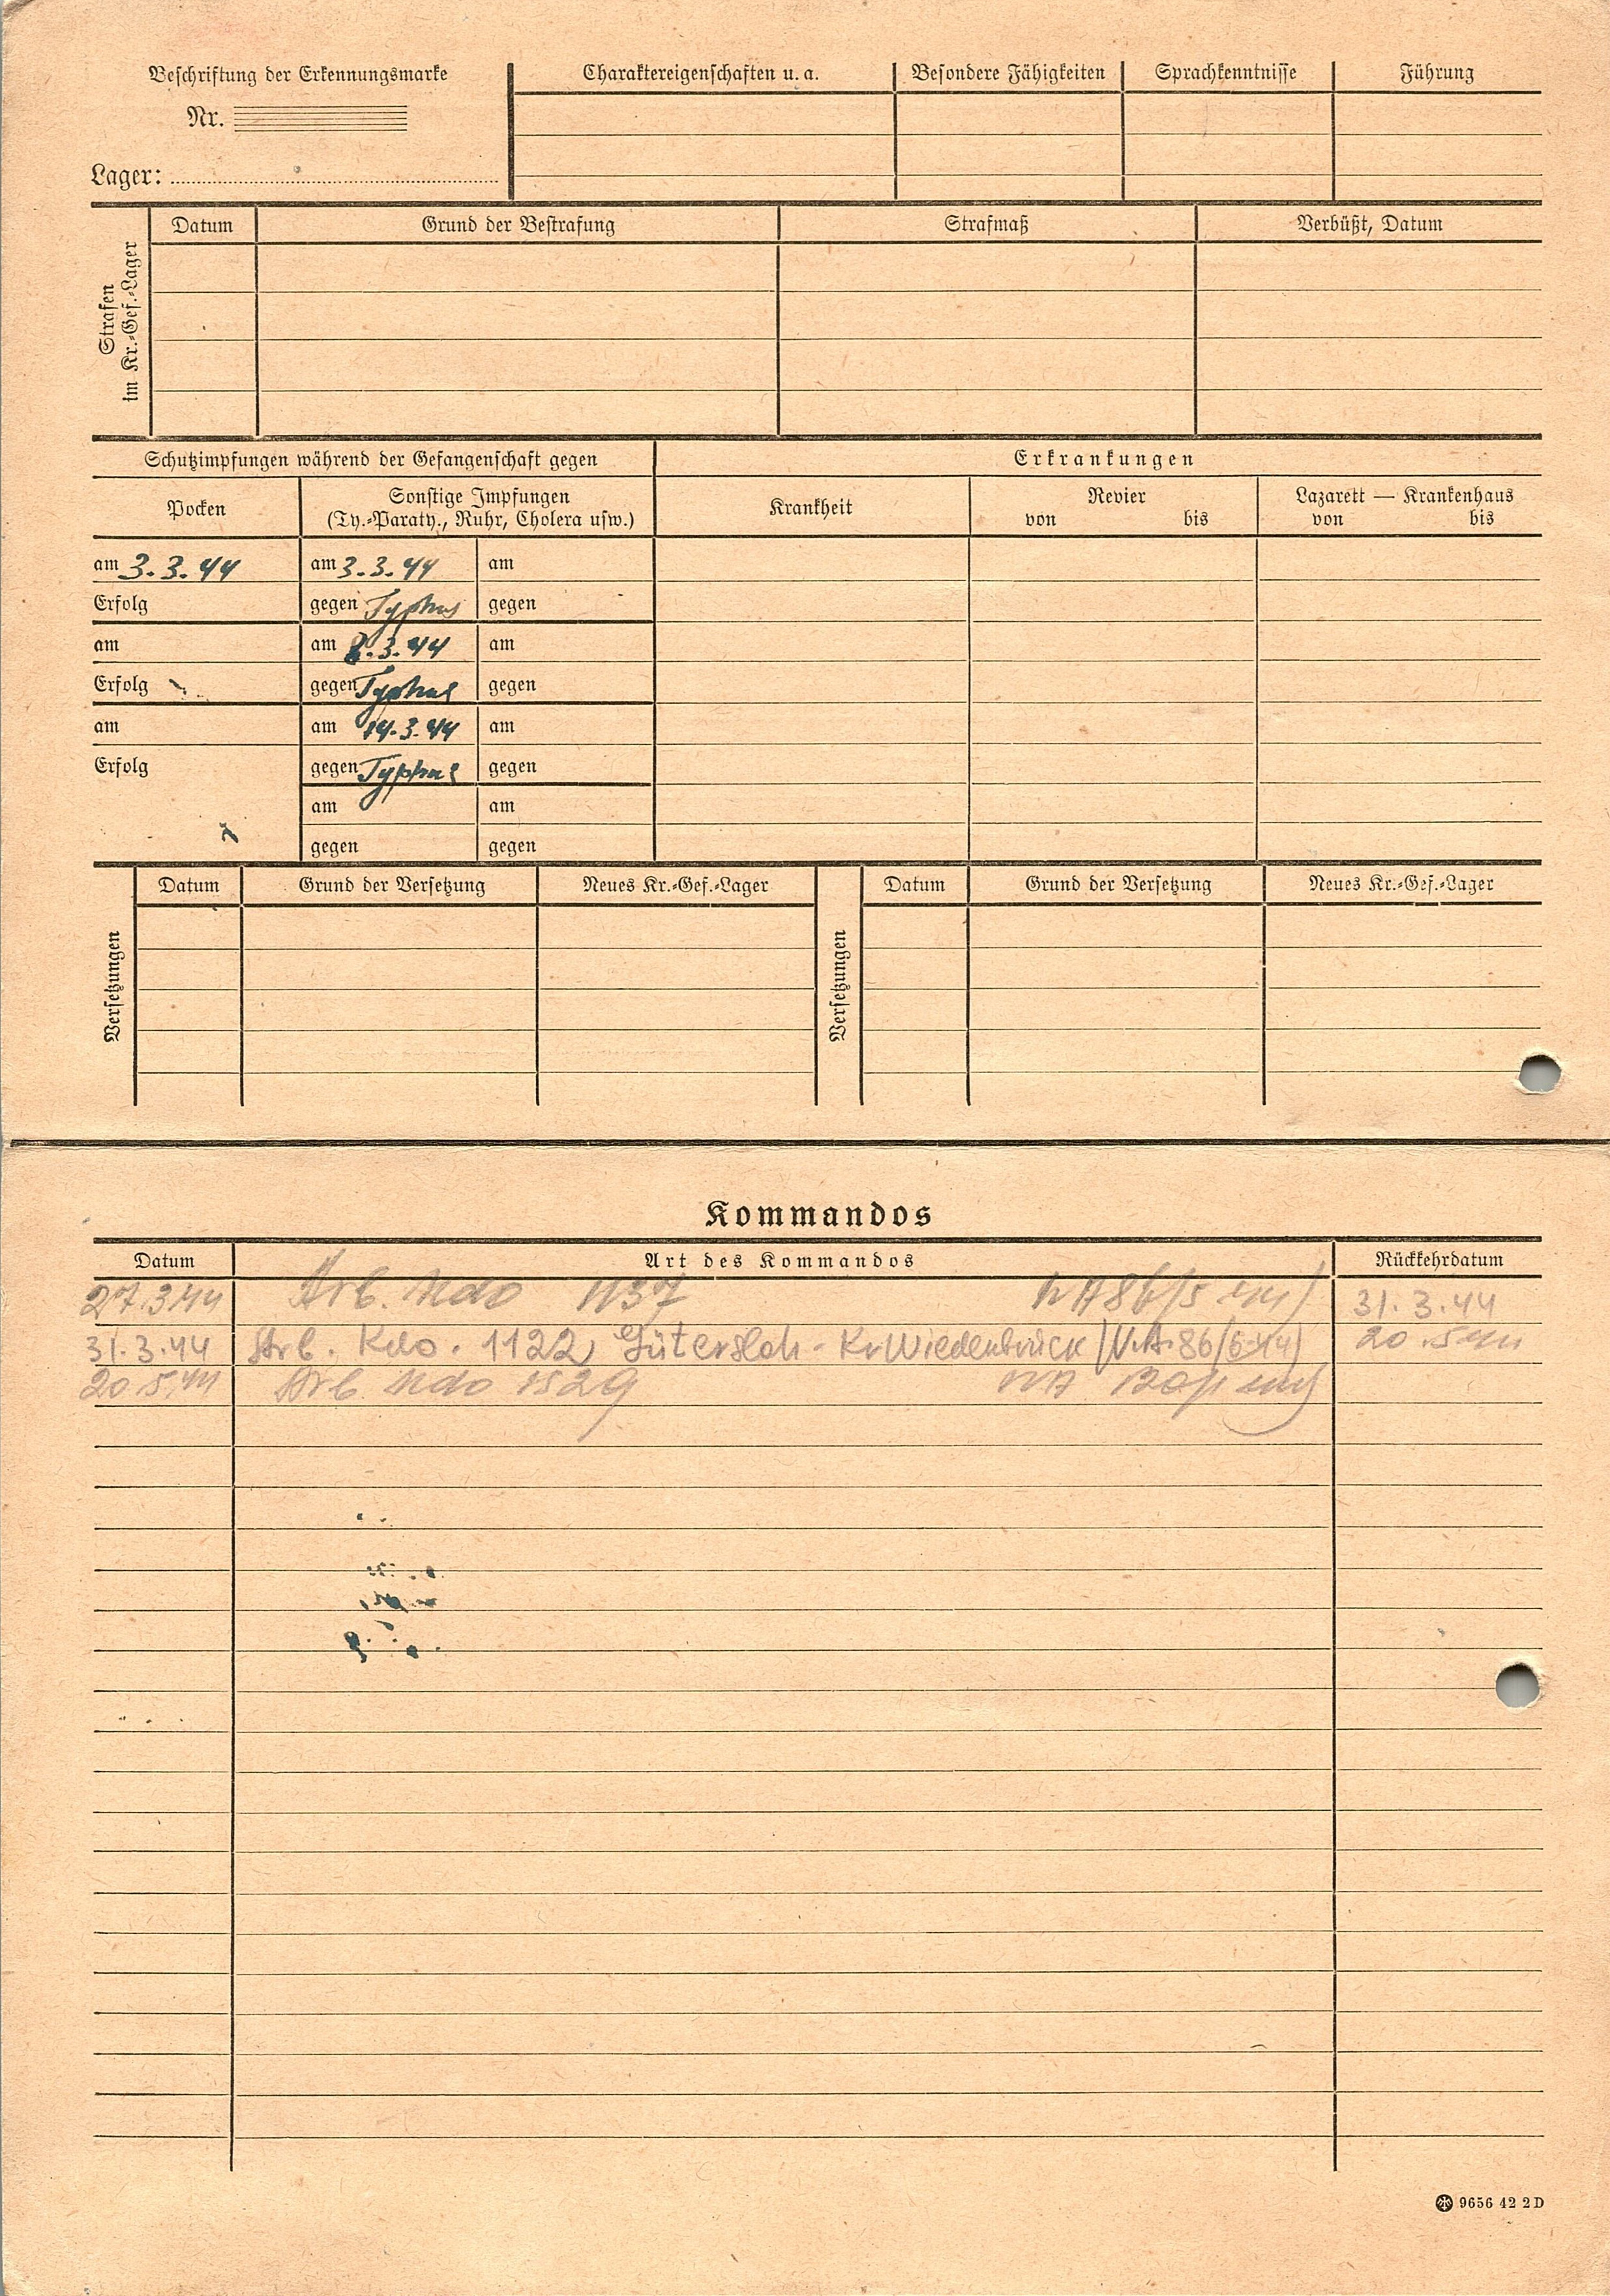 Beschriftung der Erkennungsmarke
Nr.
Lager:
Charaktereigenschaften u. a. Besondere Fähigkeiten Sprachkenntnisse Führung
Strafen
im Kr.-Gef.-Lager
Datum Grund der Bestrafung Strafmaß Verbüßt, Datum
Schutzimpfungen während der Gefangenschaft gegen Erkrankungen
Pocken
Sonstige Impfungen
(Ty.-Paraty., Ruhr, Cholera usw.)
Krankheit
Revier
von bis
Lazarett — Krankenhaus
von bis
am 3.3.44 am 3.3.44 am
Erfolg gegen Typhus gegen
am am 8.3.44 am
Erfolg gegen Typhus gegen
am am 14.3.44 am
Erfolg gegen Typhus gegen
am am
gegen gegen
Versetzungen
Datum Grund der Versetzung Neues Kr.-Gef.-Lager
Versetzungen
Datum Grund der Versetzung Neues Kr.-Gef.-Lager
Kommandos
Datum Art des Kommandos Rückkehrdatum
27.3.44 Arb. Kdo 1137 86/5 31.3.44
31.3.44 Arb. Kdo. 1122, Gütersloh - Kr Wiedenbrück (V.A. 86/6 44) 20.5.44
20.5.44 Arb. Kdo 1529
9656 42 2D